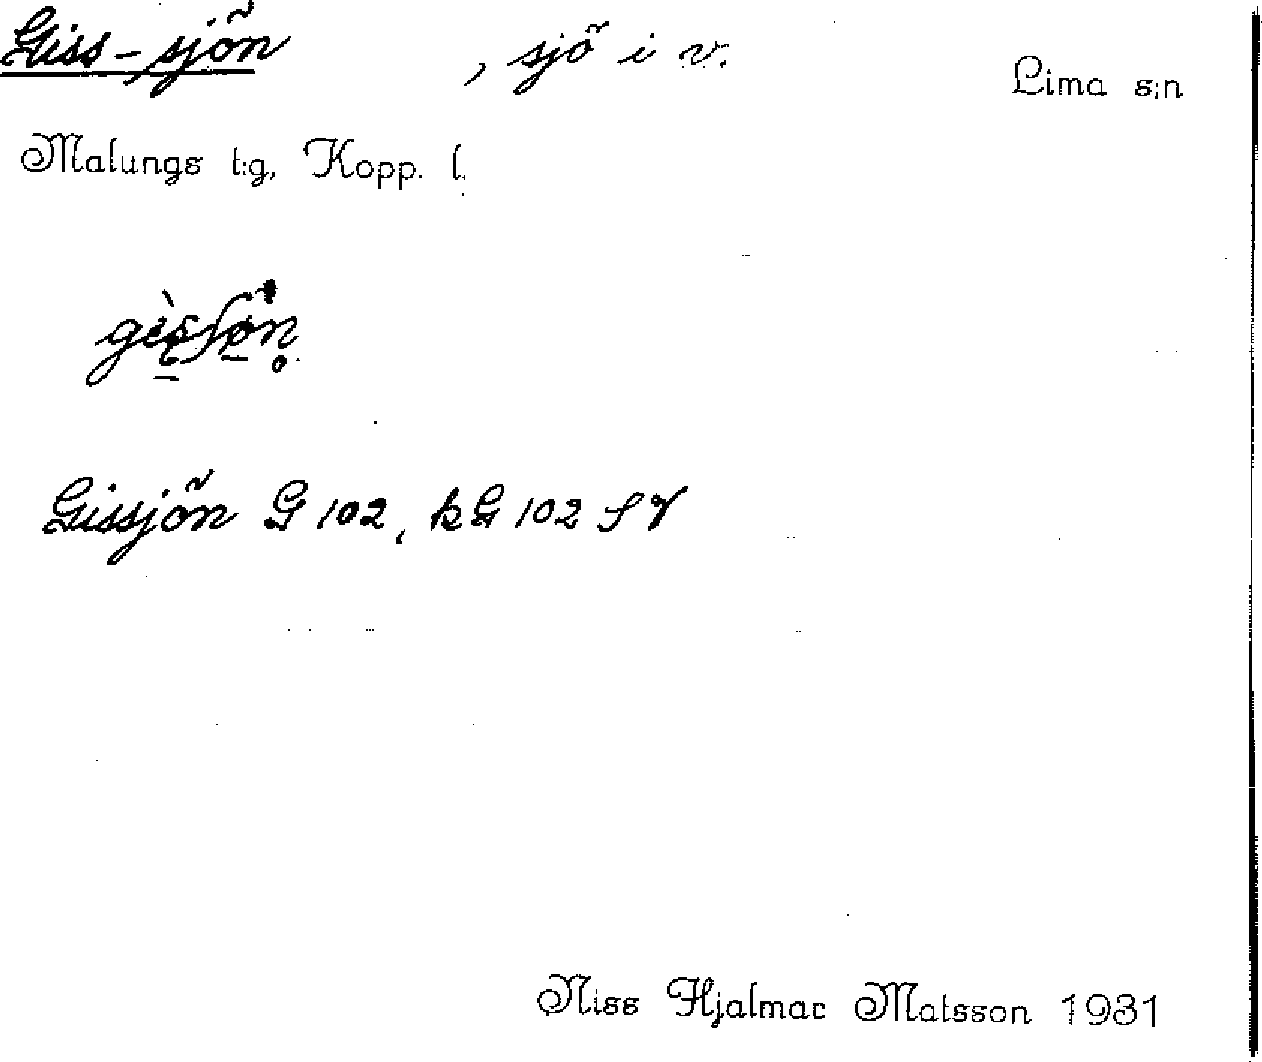 Giss-sjön , sjö i v. Lima s:n
Malungs t:g, Kopp. l.
Gissjön G 102, kG 102 SV
Niss Hjalmar Matsson 1931